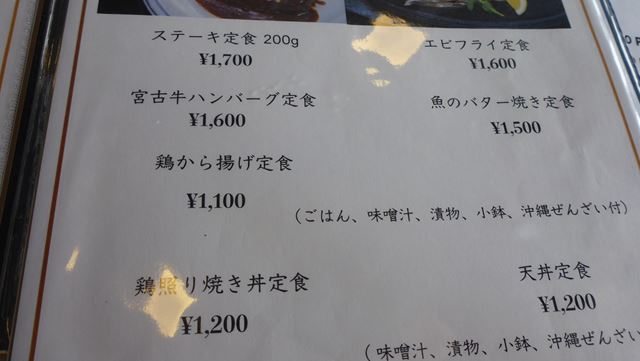 ステーキ定食 200g
¥1,700
エビフライ定食
¥1,600
宮古牛ハンバーグ定食
¥1,600
魚のバター焼き定食
¥1,500
鶏から揚げ定食
¥1,100
(ごはん、味噌汁、漬物、小鉢、沖縄ぜんざい付)
鶏照り焼き丼定食
¥1,200
天丼定食
¥1,200
(味噌汁、漬物、小鉢、沖縄ぜんざい